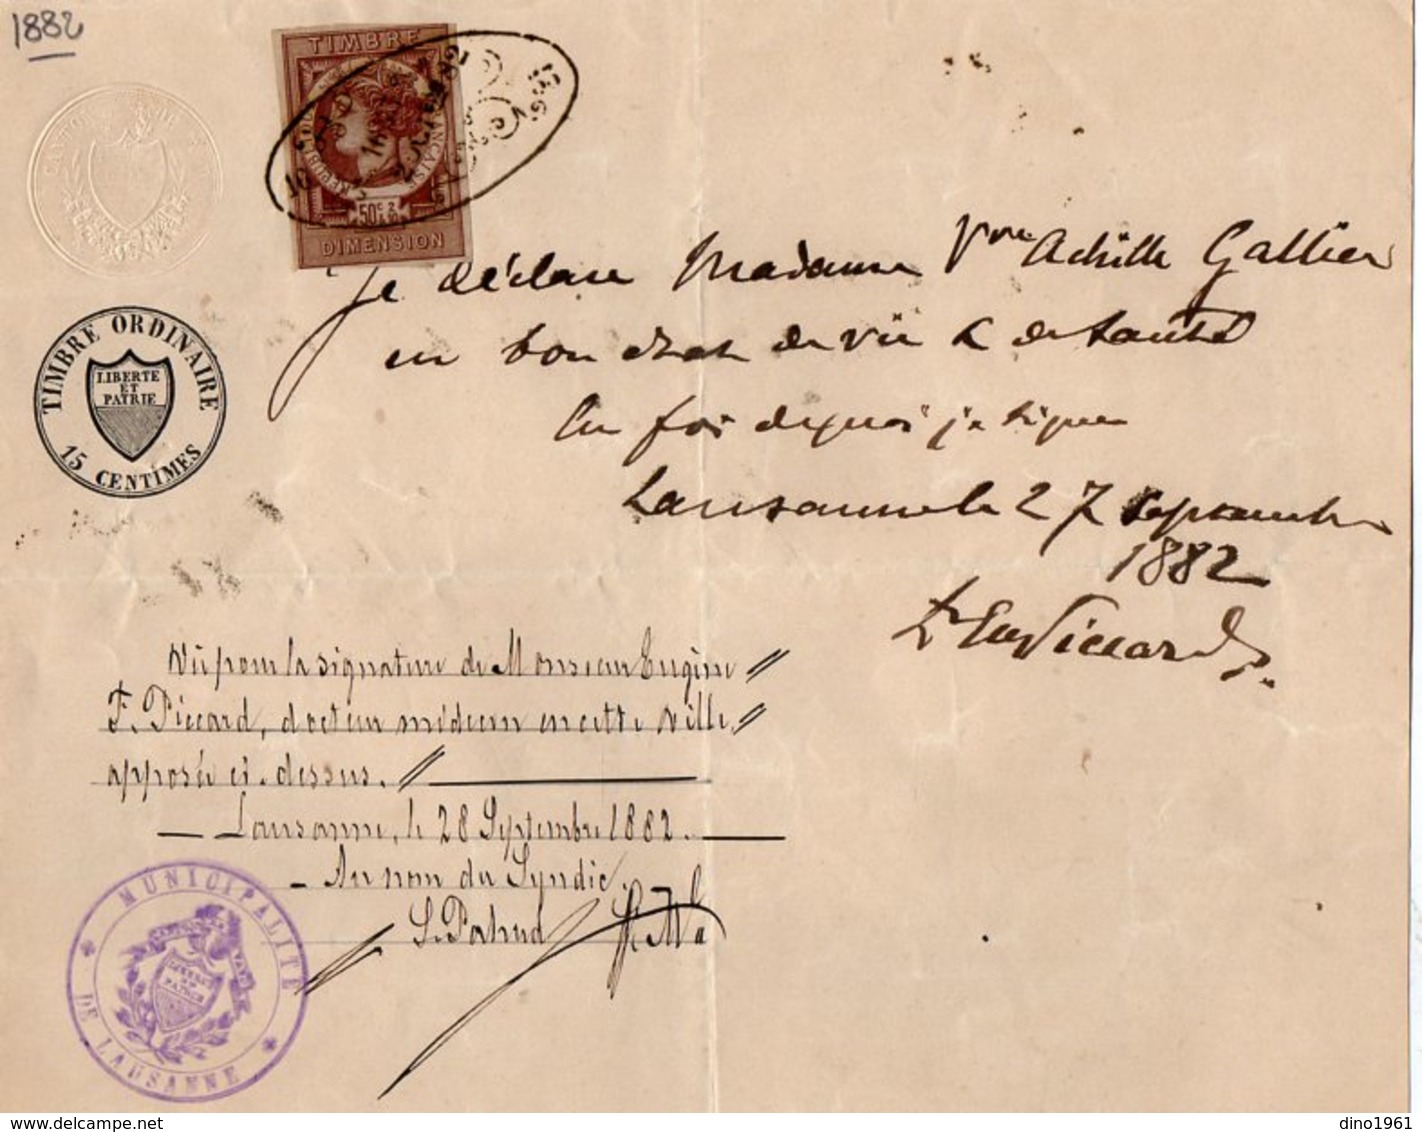 1882
TIMBRE
RÉPUBLIQUE FRANÇAISE
50c
DIMENSION
TIMBRE ORDINAIRE
LIBERTE
ET
PATRIE
15 CENTIMES
Je déclare Madame Vve Achille Gallier
en bon état de vie & de santé
En foi de quoi je signe
Lausanne le 27 septembre
1882
Dr Eug Piccard
Vu pour la signature de Monsieur Eugène
F. Piccard, docteur médecin en cette ville,
apposée ci-dessus.
Lausanne, le 28 Septembre 1882.
Au nom du Syndic,
MUNICIPALITÉ
DE LAUSANNE
LIBERTE
ET
PATRIE
dino1961